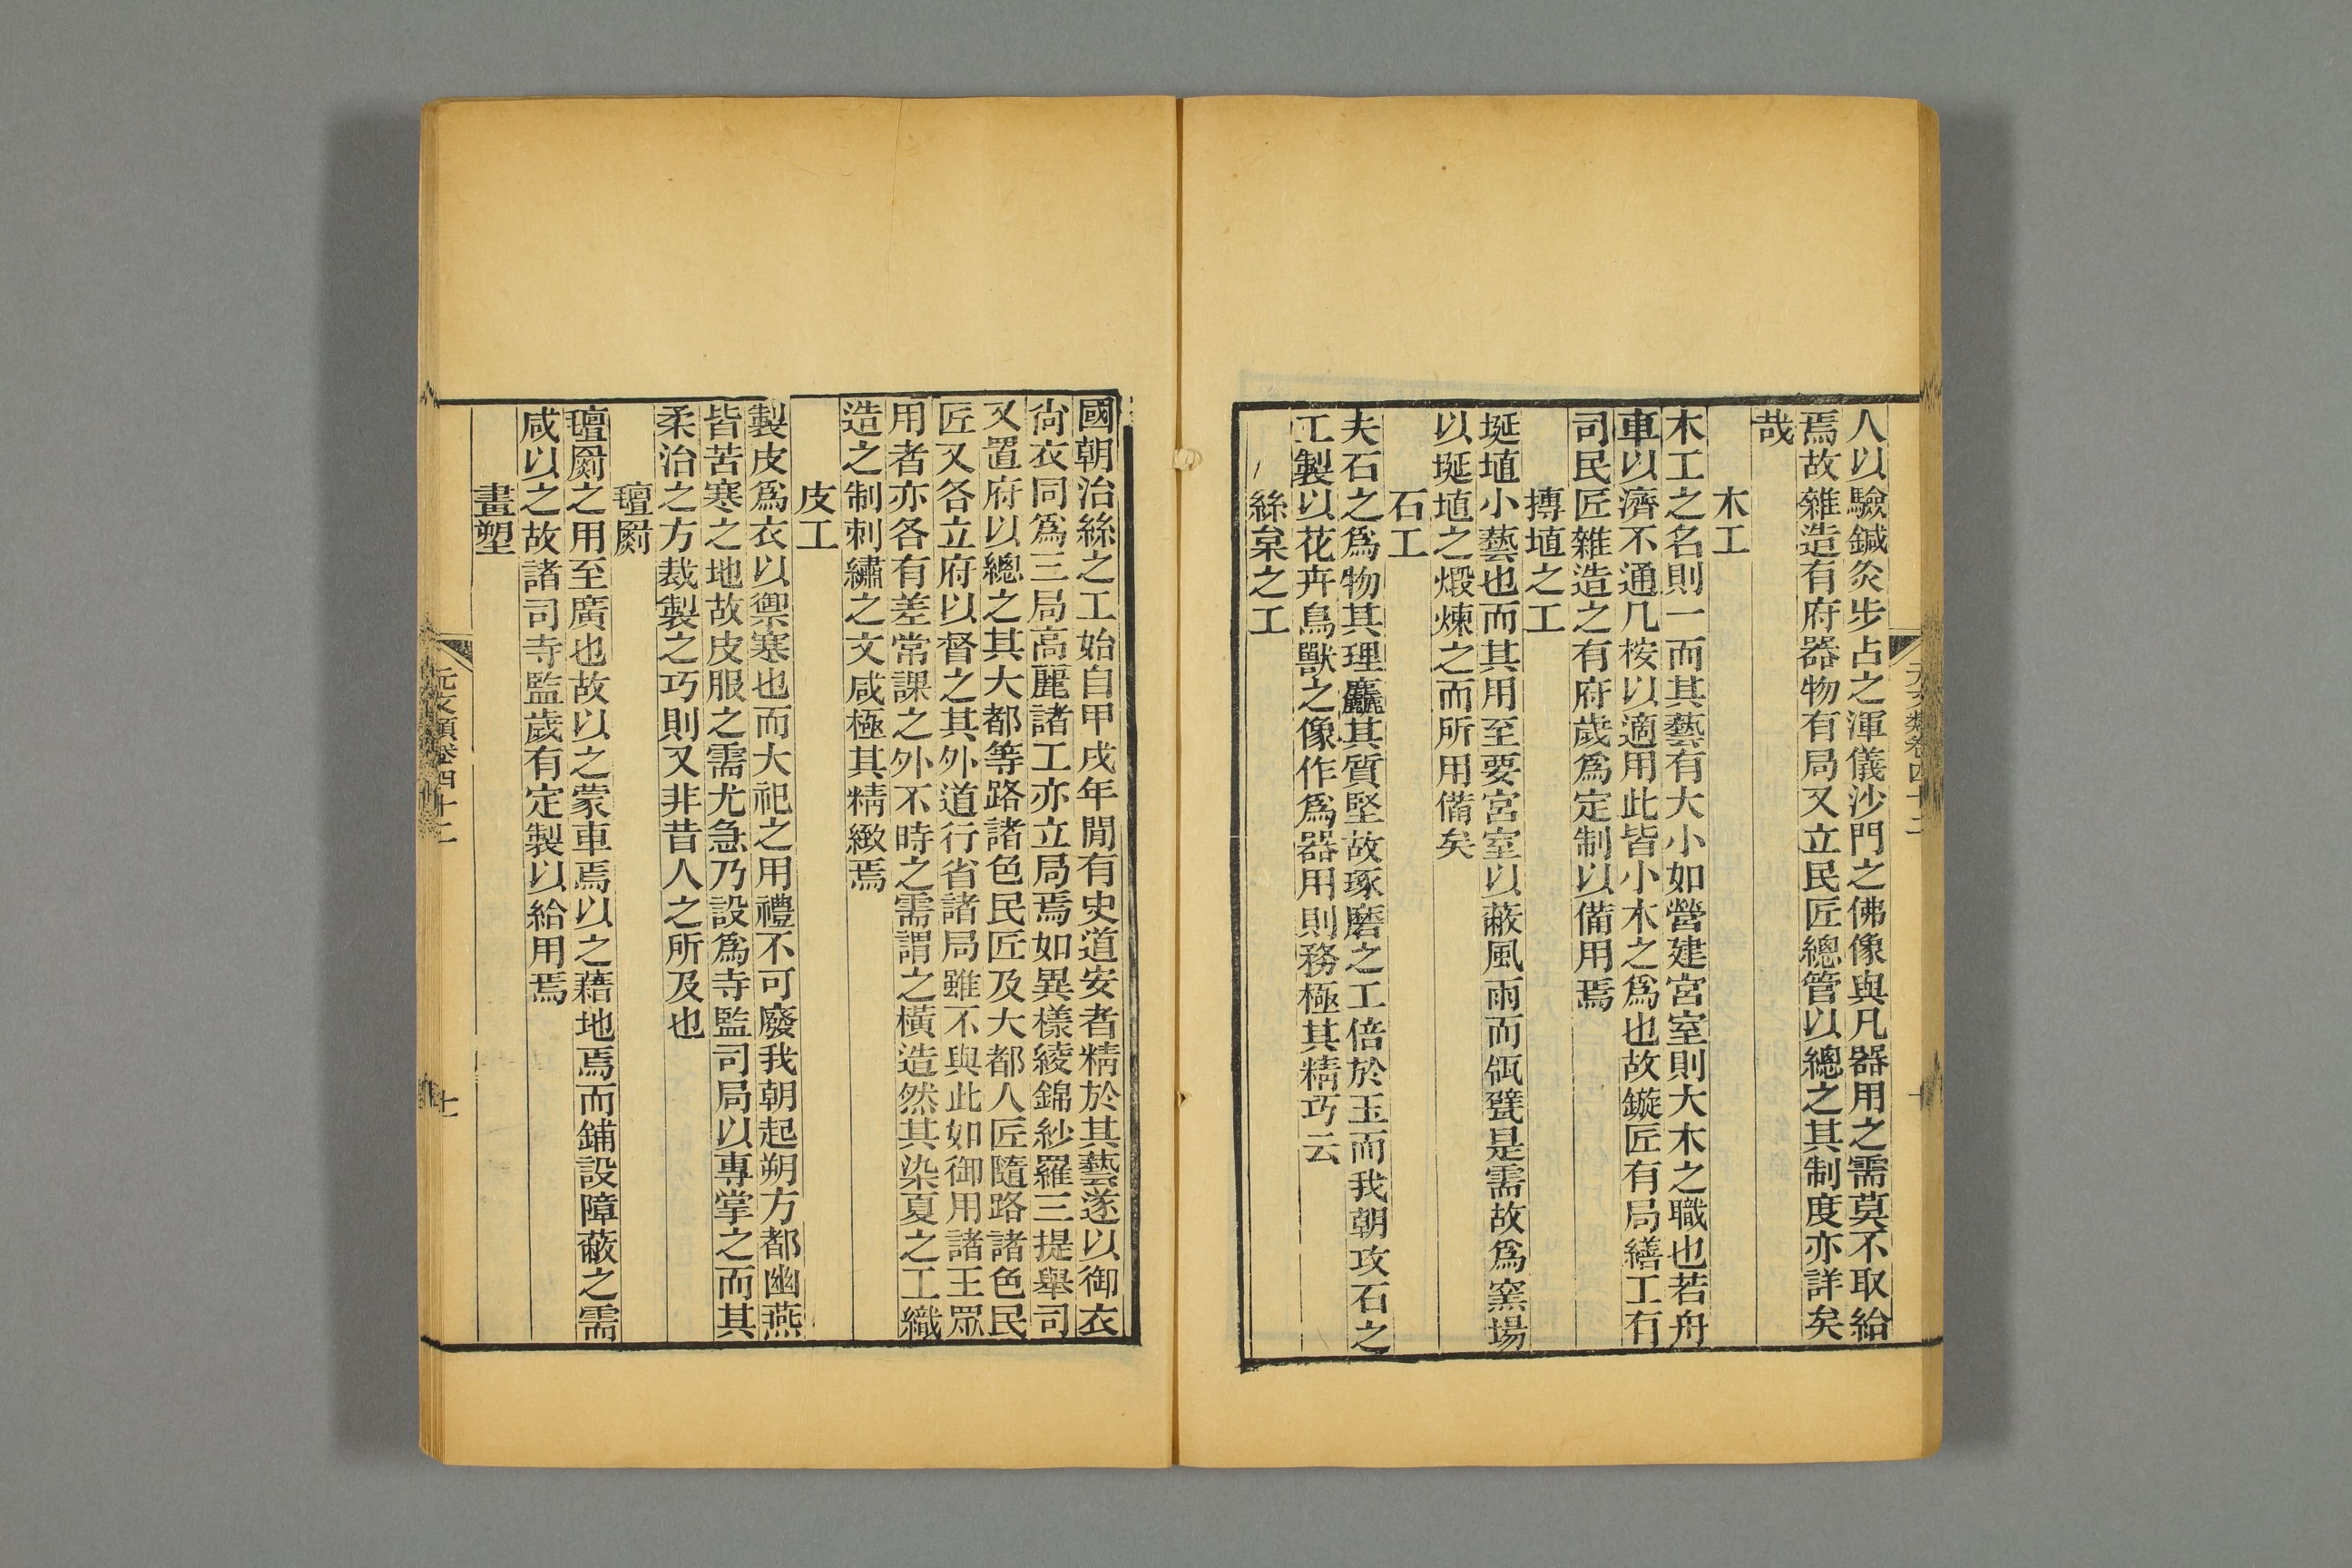 人以驗鍼灸步占之渾儀沙門之佛像與凡器用之需莫不取給
焉故雜造有府器物有局又立民匠總管以總之其制度亦詳矣
哉
木工
木工之名則一而其藝有大小如營建宮室則大木之職也若舟
車以濟不通几桉以適用此皆小木之爲也故鏇匠有局繕工有
司民匠雜造之有府歲爲定制以備用焉
搏埴之工
埏埴小藝也而其用至要宮室以蔽風雨而瓴甓是需故爲窯場
以埏埴之煅煉之而所用備矣
石工
夫石之爲物其理麤其質堅故琢磨之工倍於玉而我朝攻石之
工製以花卉鳥獸之像作爲器用則務極其精巧云
絲枲之工
元文類卷四十二
國朝治絲之工始自甲戌年閒有史道安者精於其藝遂以御衣
尙衣同爲三局高麗諸工亦立局焉如異樣綾錦紗羅三提舉司
又置府以總之其大都等路諸色民匠及大都人匠隨路諸色民
匠又各立府以督之其外道行省諸局雖不與此如御用諸王眾
用者亦各有差常課之外不時之需謂之橫造然其染夏之工織
造之制刺繡之文咸極其精緻焉
皮工
製皮爲衣以禦寒也而大祀之用禮不可廢我朝起朔方都幽燕
皆苦寒之地故皮服之需尤急乃設爲寺監司局以專掌之而其
柔治之方裁製之巧則又非昔人之所及也
氊罽
氊罽之用至廣也故以之蒙車焉以之藉地焉而鋪設障蔽之需
咸以之故諸司寺監歲有定製以給用焉
畫塑
元文類卷四十二
十一